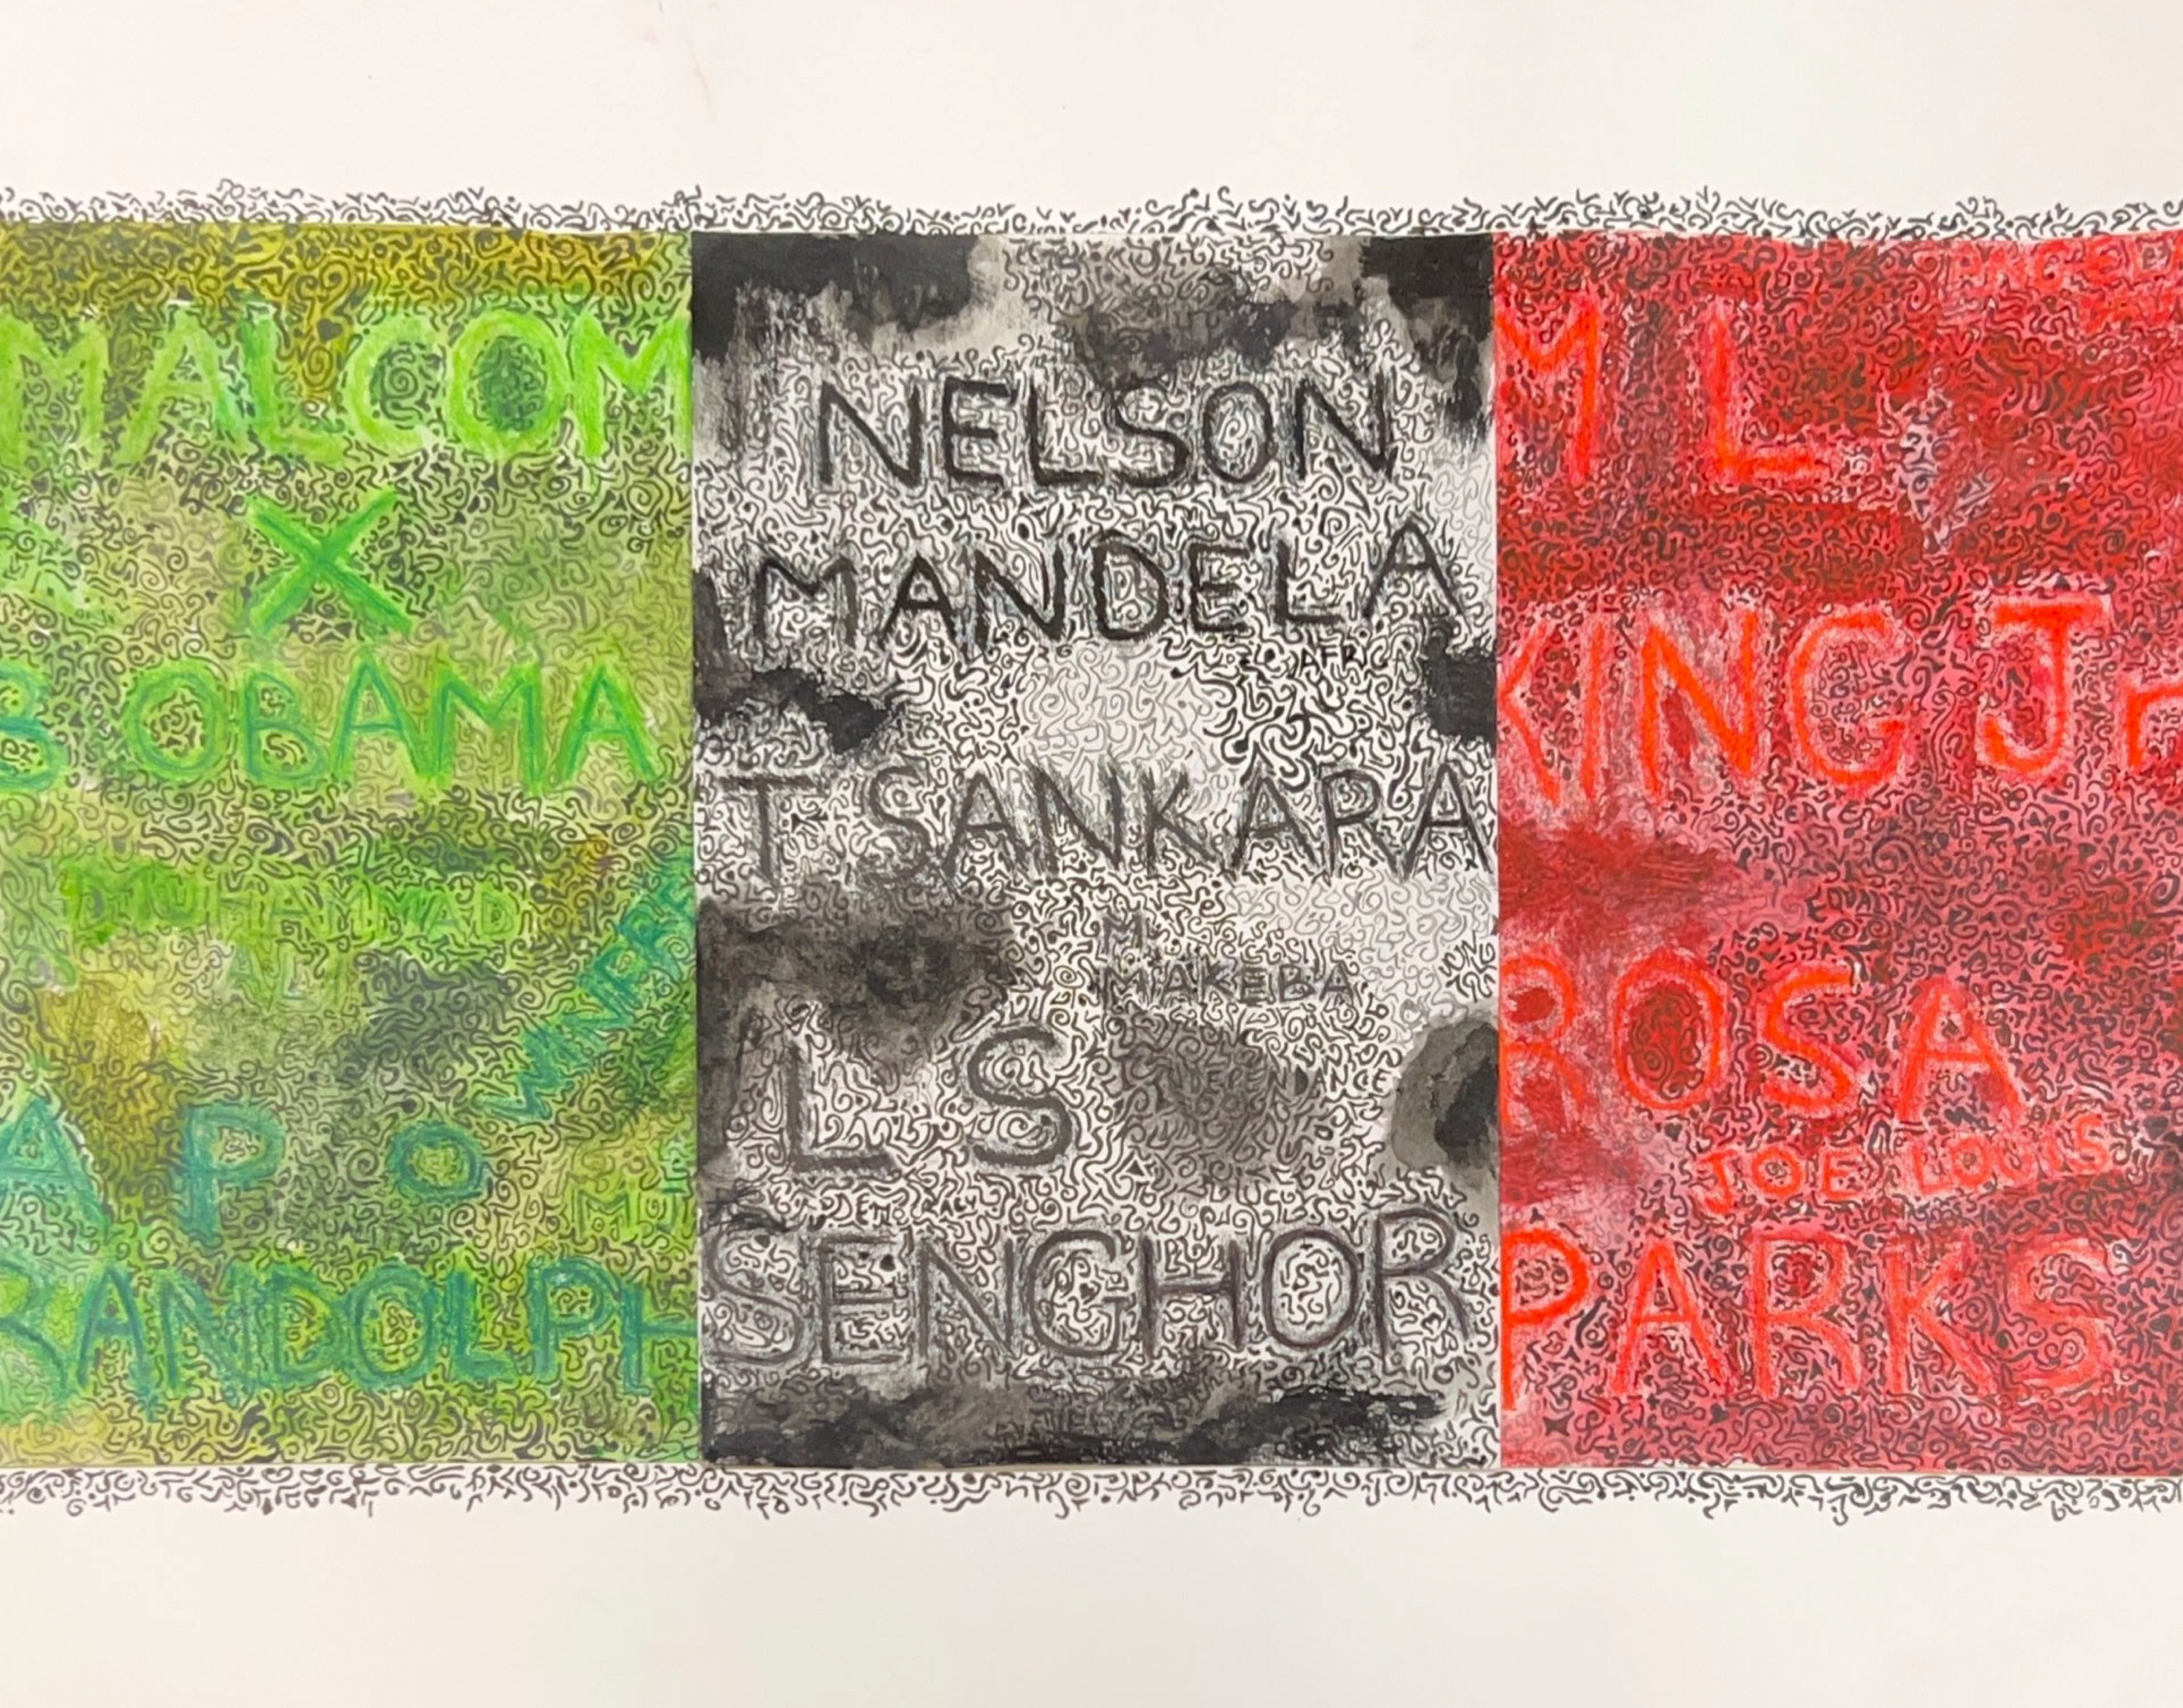 MALCOM
X
B OBAMA
MUHAMMAD
ALI
A P O
RANDOLPH
NELSON
MANDELA
AFR
T SANKARA
M.
MAKEBA
L S
SENGHOR
M L
KING Jr
ROSA
JOE LOUIS
PARKS